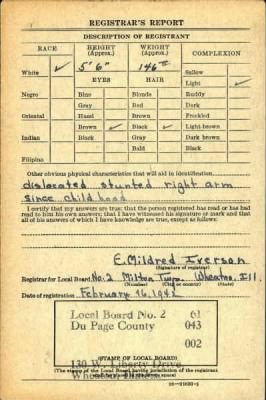 REGISTRAR'S REPORT
DESCRIPTION OF REGISTRANT
RACE HEIGHT (Approx.) WEIGHT (Approx.) COMPLEXION
5' 6" 146 Sallow
White ✓ EYES HAIR Light ✓
Negro Blue Blonde Ruddy
Gray Red Dark
Oriental Hazel Brown Freckled
Brown ✓ Black ✓ Light brown
Indian Black Gray Dark brown
Bald Black
Filipino
Other obvious physical characteristics that will aid in identification
dislocated stunted right arm
since childhood
I certify that my answers are true; that the person registered has read or has had
read to him his own answers; that I have witnessed his signature or mark and that
all of his answers of which I have knowledge are true, except as follows:
E. Mildred Iverson
(Signature of registrar)
Registrar for Local Board No. 2 Milton Twp. Wheaton Ill.
(Number) (City or county) (State)
Date of registration February 16, 1942
Local Board No. 2 61
Du Page County 043
002
130 W. Liberty Drive
(STAMP OF LOCAL BOARD)
(The stamp of the Local Board having jurisdiction of the registrant
shall be placed in the above space)